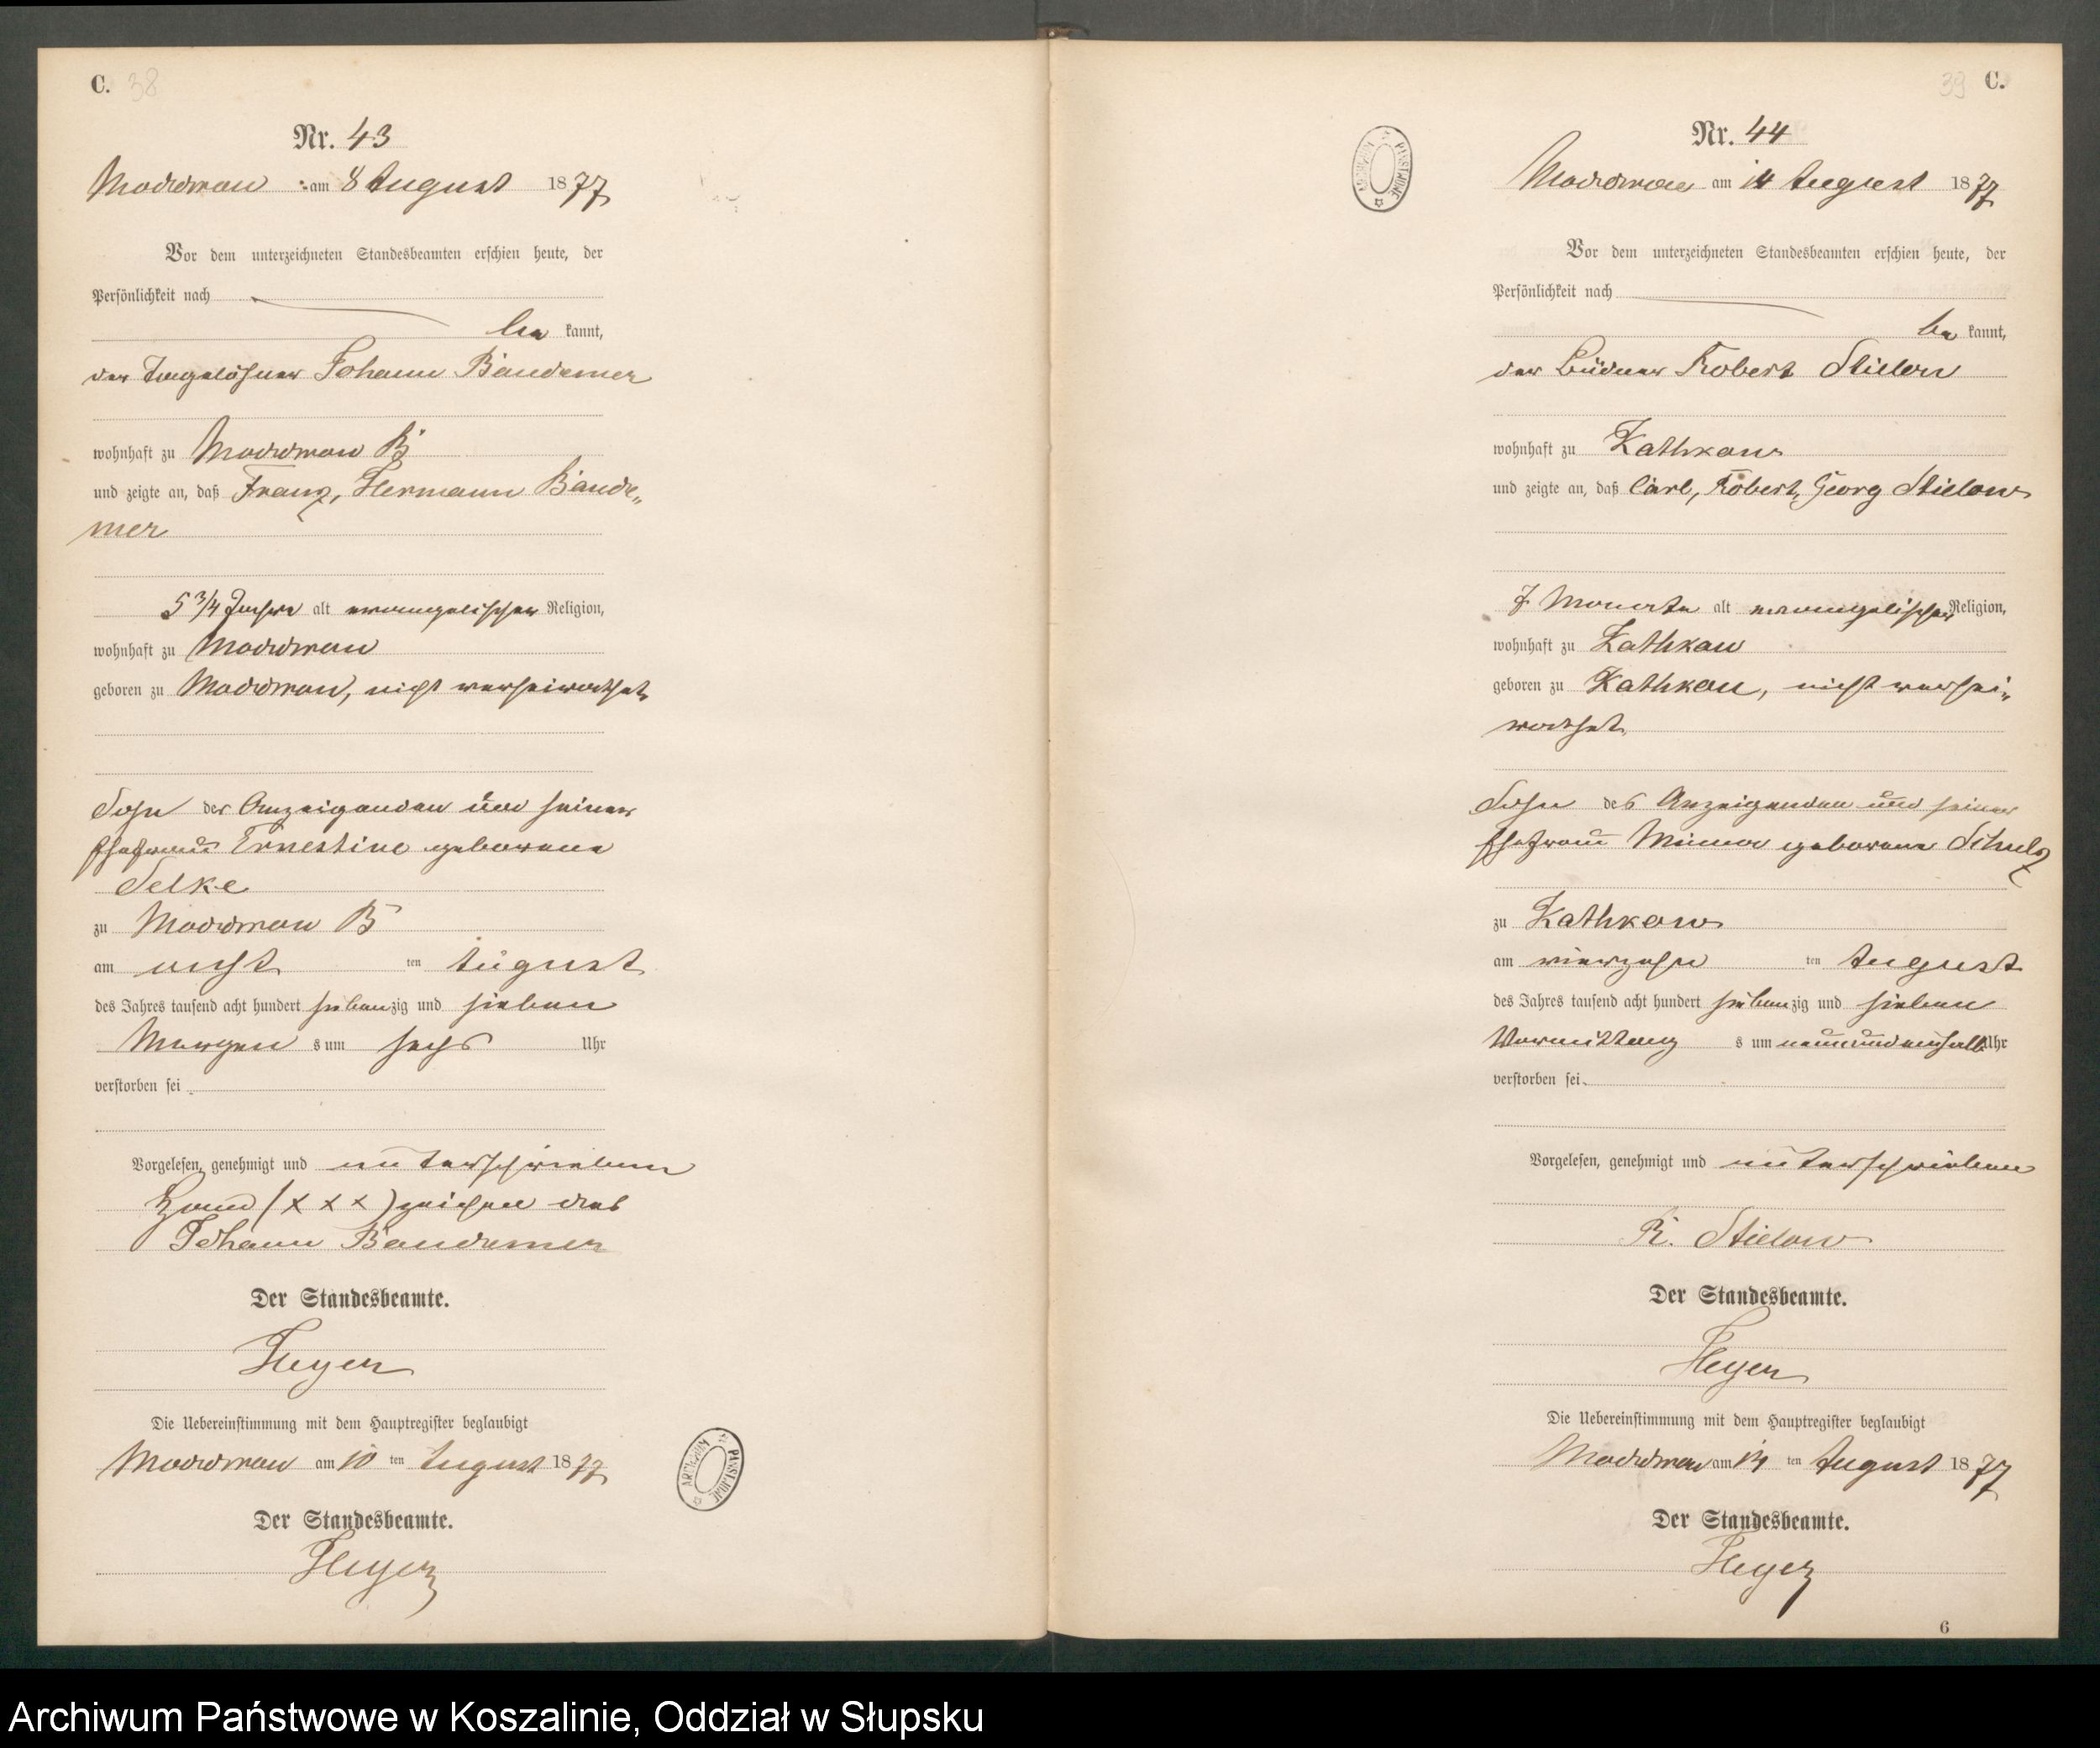 C. 38
Nr. 43
Moddrow am 8 August 1877
Vor dem unterzeichneten Standesbeamten erschien heute, der
Persönlichkeit nach
be kannt,
der Tagelöhner Johann Bandemer
wohnhaft zu Moddrow B
und zeigte an, daß Franz, Hermann Bande„
mer
5 3/4 Jahre alt evangelischer Religion,
wohnhaft zu Moddrow
geboren zu Moddrow, nicht verheirathet
Sohn des Anzeigenden und seiner
Ehefrau Ernestine geborene
Selke
zu Moddrow B
am acht ten August
des Jahres tausend acht hundert siebenzig und sieben
Morgen s um sechs Uhr
verstorben sei
Vorgelesen, genehmigt und unterschrieben
Hand (x x x) zeichen des
Johann Bandemer
Der Standesbeamte.
Heyer
Die Uebereinstimmung mit dem Hauptregister beglaubigt
Moddrow am 10 ten August 1877
Der Standesbeamte.
Heyer
39 C.
Nr. 44
Moddrow am 14 August 1877
Vor dem unterzeichneten Standesbeamten erschien heute, der
Persönlichkeit nach
be kannt,
der Büdner Robert Stielow
wohnhaft zu Kathkow
und zeigte an, daß Carl, Robert, Georg Stielow
7 Monate alt evangelischer Religion,
wohnhaft zu Kathkow
geboren zu Kathkow, nicht verhei„
rathet
Sohn des Anzeigenden und seiner
Ehefrau Minna geborene Schulz
zu Kathkow
am vierzehn ten August
des Jahres tausend acht hundert siebenzig und sieben
Vormittag s um neun und einhalb Uhr
verstorben sei
Vorgelesen, genehmigt und unterschrieben
R. Stielow
Der Standesbeamte.
Heyer
Die Uebereinstimmung mit dem Hauptregister beglaubigt
Moddrow am 14 ten August 1877
Der Standesbeamte.
Heyer
6
Archiwum Państwowe w Koszalinie, Oddział w Słupsku